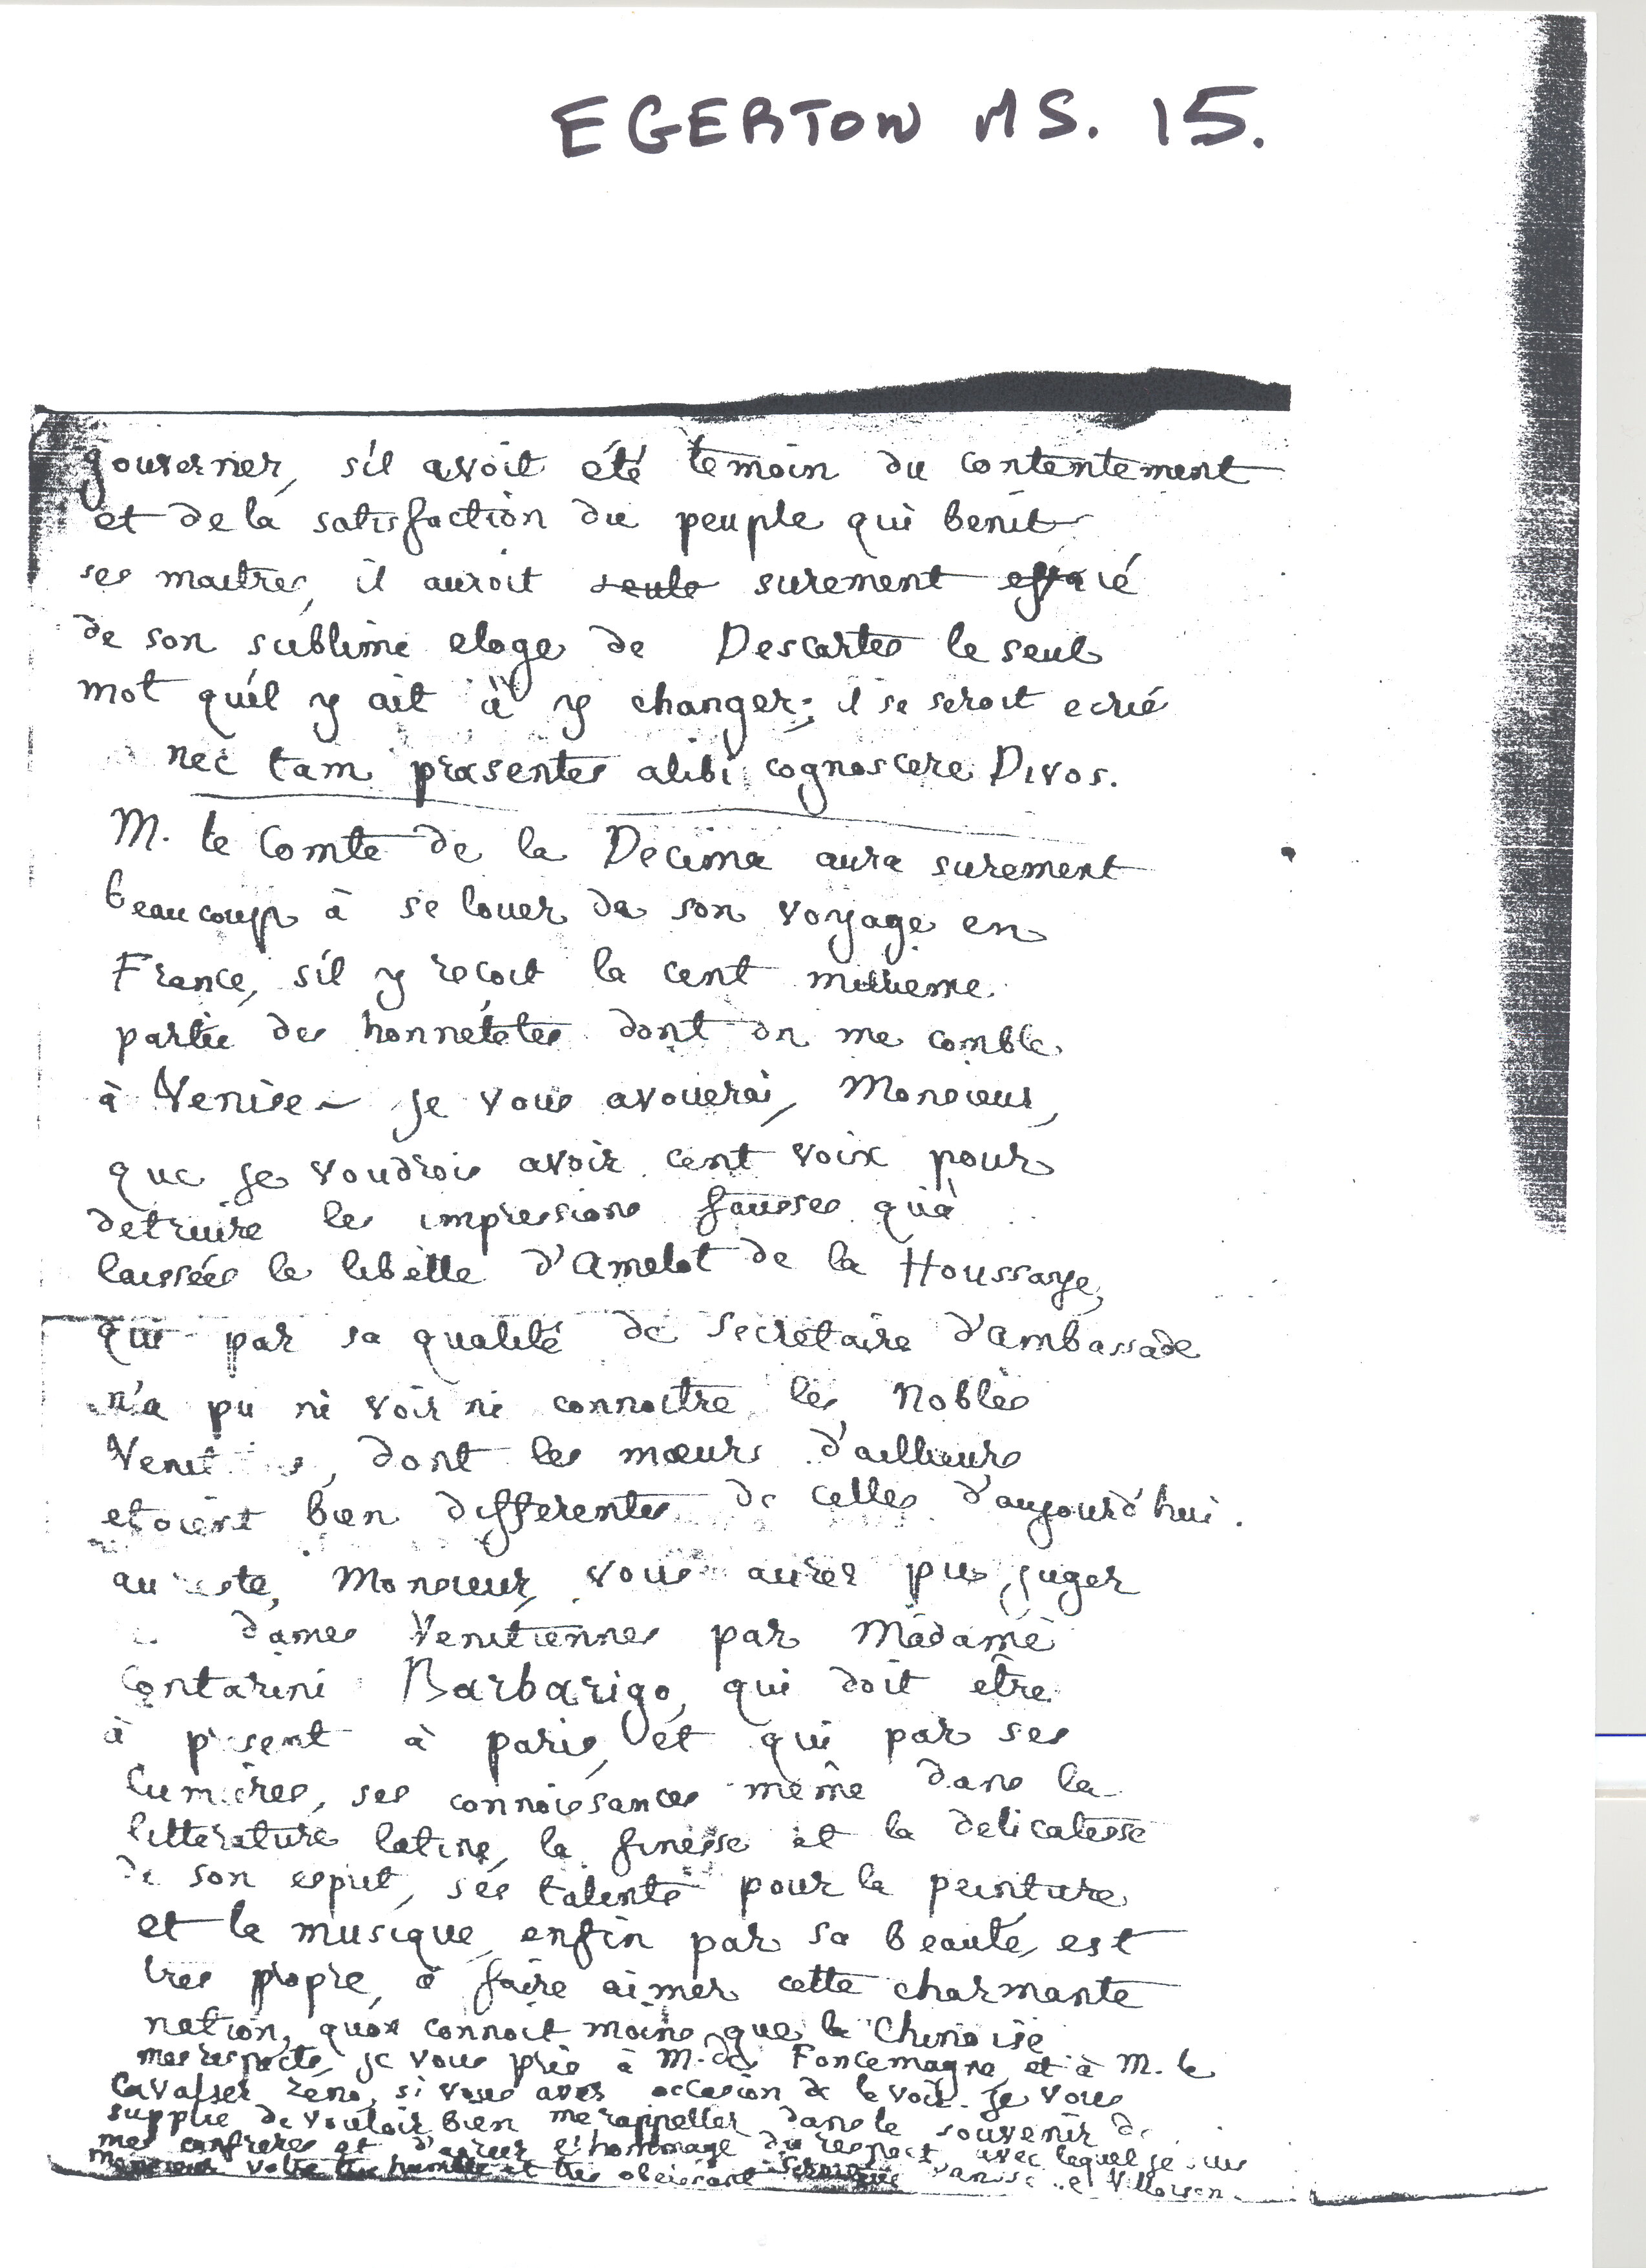 EGERTON MS. 15.
gouverner, s'il avoit été temoin du contentement
et de la satisfaction du peuple qui benit
ses maitres, il auroit seule surement effacié
de son sublime eloge de Descartes le seul
mot qu'il y ait à y changer; il se seroit ecrié
nec tam præsentes alibi cognoscere Divos.
M. le Comte de la Decima aura surement
beaucoup à se louer de son voyage en
France, s'il y reçoit la cent millieme
partie des honnetetes dont on me comble
à Venise - je vous avouerai, Monsieur,
que je voudrois avoir cent voix pour
detruire les impressions fausses qu'a
laissées le libelle d'Amelot de la Houssaye,
qui par sa qualité de secretaire d'ambassade
n'a pu ni voir ni connoitre les Nobles
Venit s, dont les mœurs d'ailleurs
etoient bien differentes de celles d'aujourd'hui.
au reste, Monsieur, vous aurez pu juger
dames Venitiennes par Madame
Contarini Barbarigo, qui doit etre
à present à paris, et qui par ses
lumieres, ses connoissances même dans la
litterature latine, la finesse et la delicatesse
de son esprit, ses talents pour la peinture
et la musique, enfin par sa beauté, est
tres propre à faire aimer cette charmante
nation, qu'on connoit moins que la Chinoise
mes respects, je vous prie à M. de Foncemagne et à M. le
Cavalier Zéno, si vous avez occasion de le voir. je vous
supplie de vouloir bien me rappeller dans le souvenir de
mes confreres et d'agréer l'hommage du respect avec lequel je suis
Monsieur votre tres humble et tres obeissant serviteur Villoison